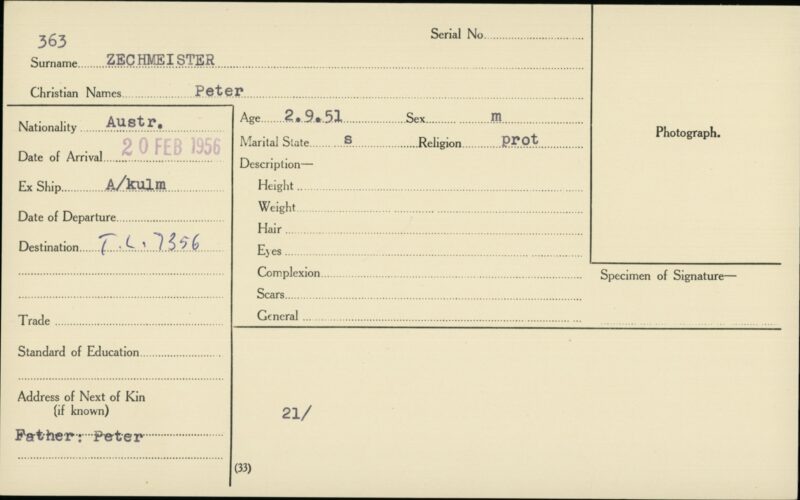 363
Serial No.
Surname ZECHMEISTER
Christian Names Peter
Nationality Austr.
Date of Arrival 20 FEB 1956
Ex Ship A/kulm
Date of Departure
Destination T.L. 7356
Trade
Standard of Education
Address of Next of Kin
(if known)
Father: Peter
Age 2.9.51 Sex m
Marital State s Religion prot
Description—
Height
Weight
Hair
Eyes
Complexion
Scars
General
21/
(33)
Photograph.
Specimen of Signature—